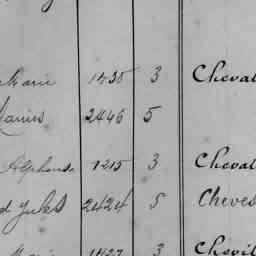 Marie 1435 3 Cheval
Marius 2446 5
Alphonse 1215 3 Cheval
Jules 2424 5 Cheves
3 Chevil